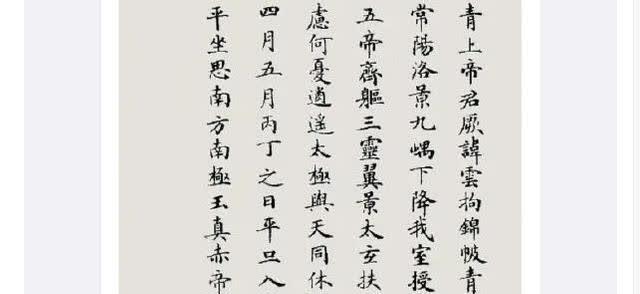 青上帝君厥諱雲拘錦帔青
常陽洛景九嵎下降我室授
五帝齊軀三靈翼景太玄扶
慮何憂逍遙太極與天同休
四月五月丙丁之日平旦入
平坐思南方南極玉真赤帝